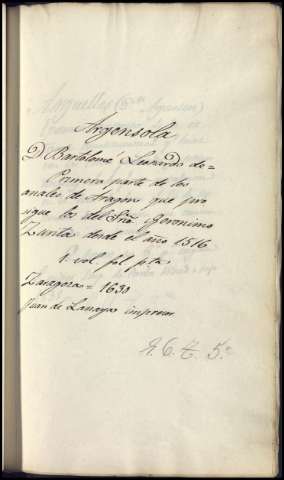 Argonsola
D Bartolomé Leonardo de =
Primera parte de los
anales de Aragon que pro
sigue los del Sro Geronimo
Zurita desde el año 1516
1. vol. fol. pta
Zaragoza = 1630
Juan de Lanaja impresor
A. 6. t. 5.